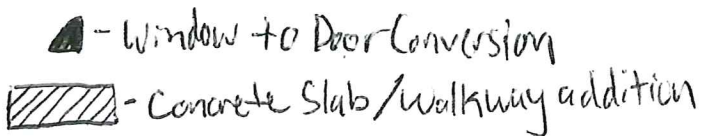 - Window to Door Conversion
- Concrete Slab/Walkway addition